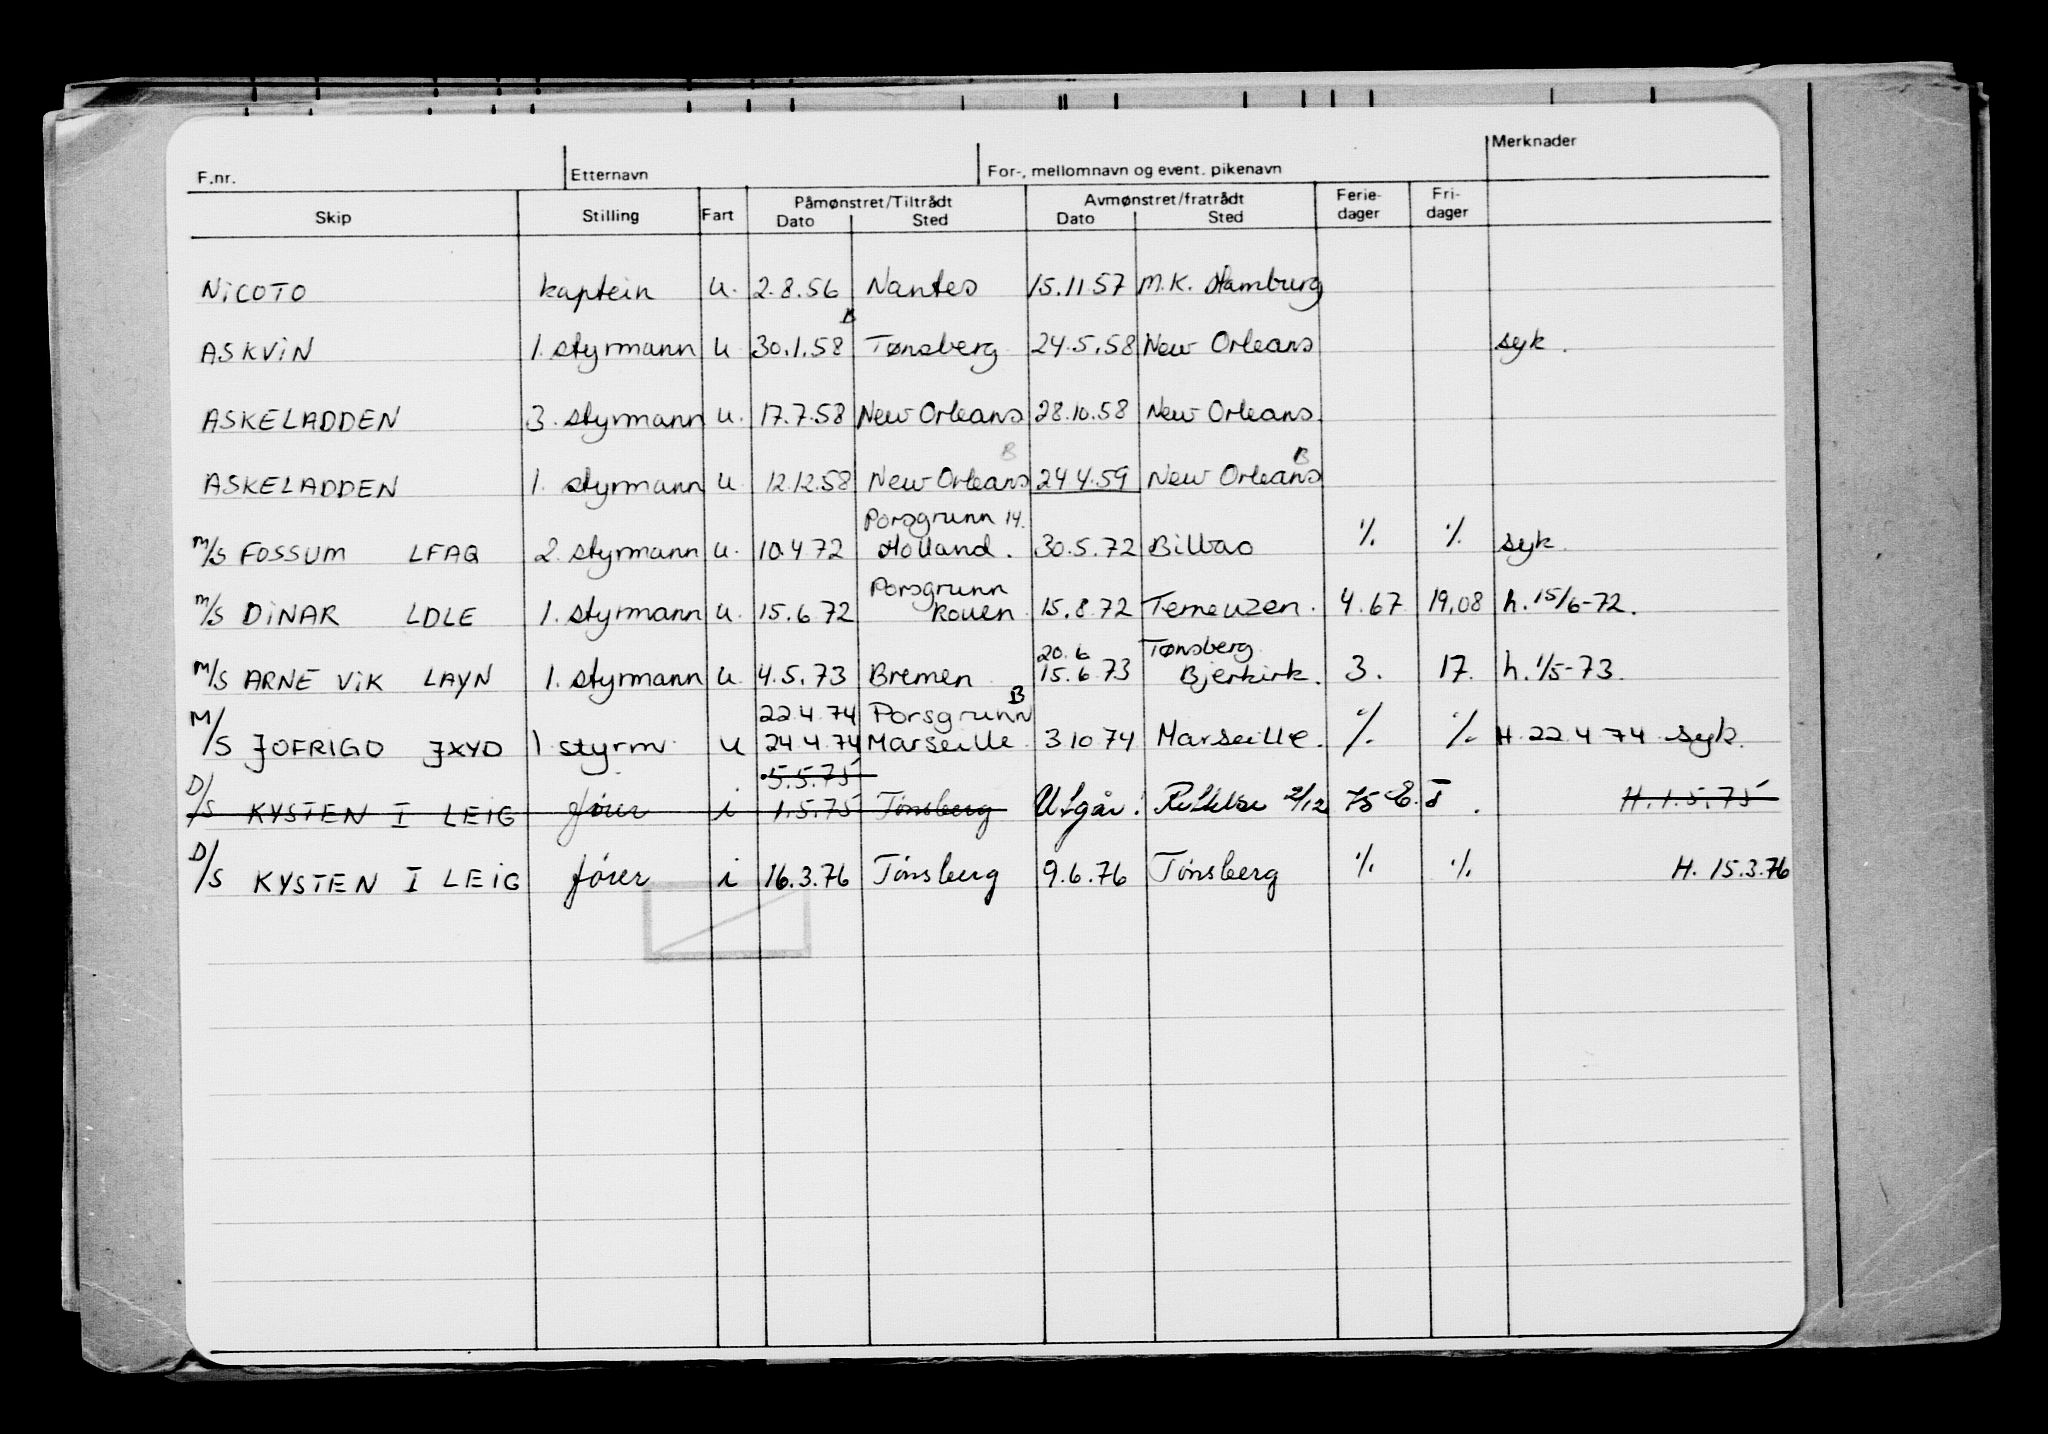 F.nr. Etternavn For-, mellomnavn og event. pikenavn Merknader
Skip Stilling Fart Påmønstret/Tiltrådt Avmønstret/fratrådt Ferie-dager Fri-dager
Dato Sted Dato Sted
NICOTO kaptein u. 2.8.56 Nantes 15.11 57 M.K. Hamburg
B
ASKVIN 1. styrmann u 30.1.58 Tønsberg 24.5.58 New Orleans syk.
ASKELADDEN 3. styrmann u. 17.7.58 New Orleans 28.10.58 New Orleans.
B B
ASKELADDEN 1. styrmann u 12.12.58 New Orleans 24 4.59 New Orleans
Porsgrunn 14.
M/S FOSSUM LFAQ 2. styrmann u. 10.4 72 Holland. 30.5.72 Bilbao ٪ ٪ syk.
Porsgrunn
M/S DINAR LDLE 1. styrmann u. 15.6.72 Rouen. 15.8.72 Terneuzen. 4.67 19,08 h. 15/6-72.
20.6 Tønsberg
M/S ARNE VIK LAYN 1. styrmann u. 4.5.73 Bremen 15.6.73 Bjerkirk. 3. 17. h. 1/5-73.
B
22.4.74 Porsgrunn
M/S JOFRIGO JXYD 1 styrm. u 24.4.74 Marseille. 3 10 74 Marseille. ٪ ٪ H. 22 4 74 syk.
5.5.75
D/S KYSTEN I LEIG fører i 1.5.75 Tønsberg Utgår. Rettelse 2/12 75 H. 1.5.75
D/S KYSTEN I LEIG fører i 16.3.76 Tønsberg 9.6.76 Tønsberg ٪ ٪ H. 15.3.76